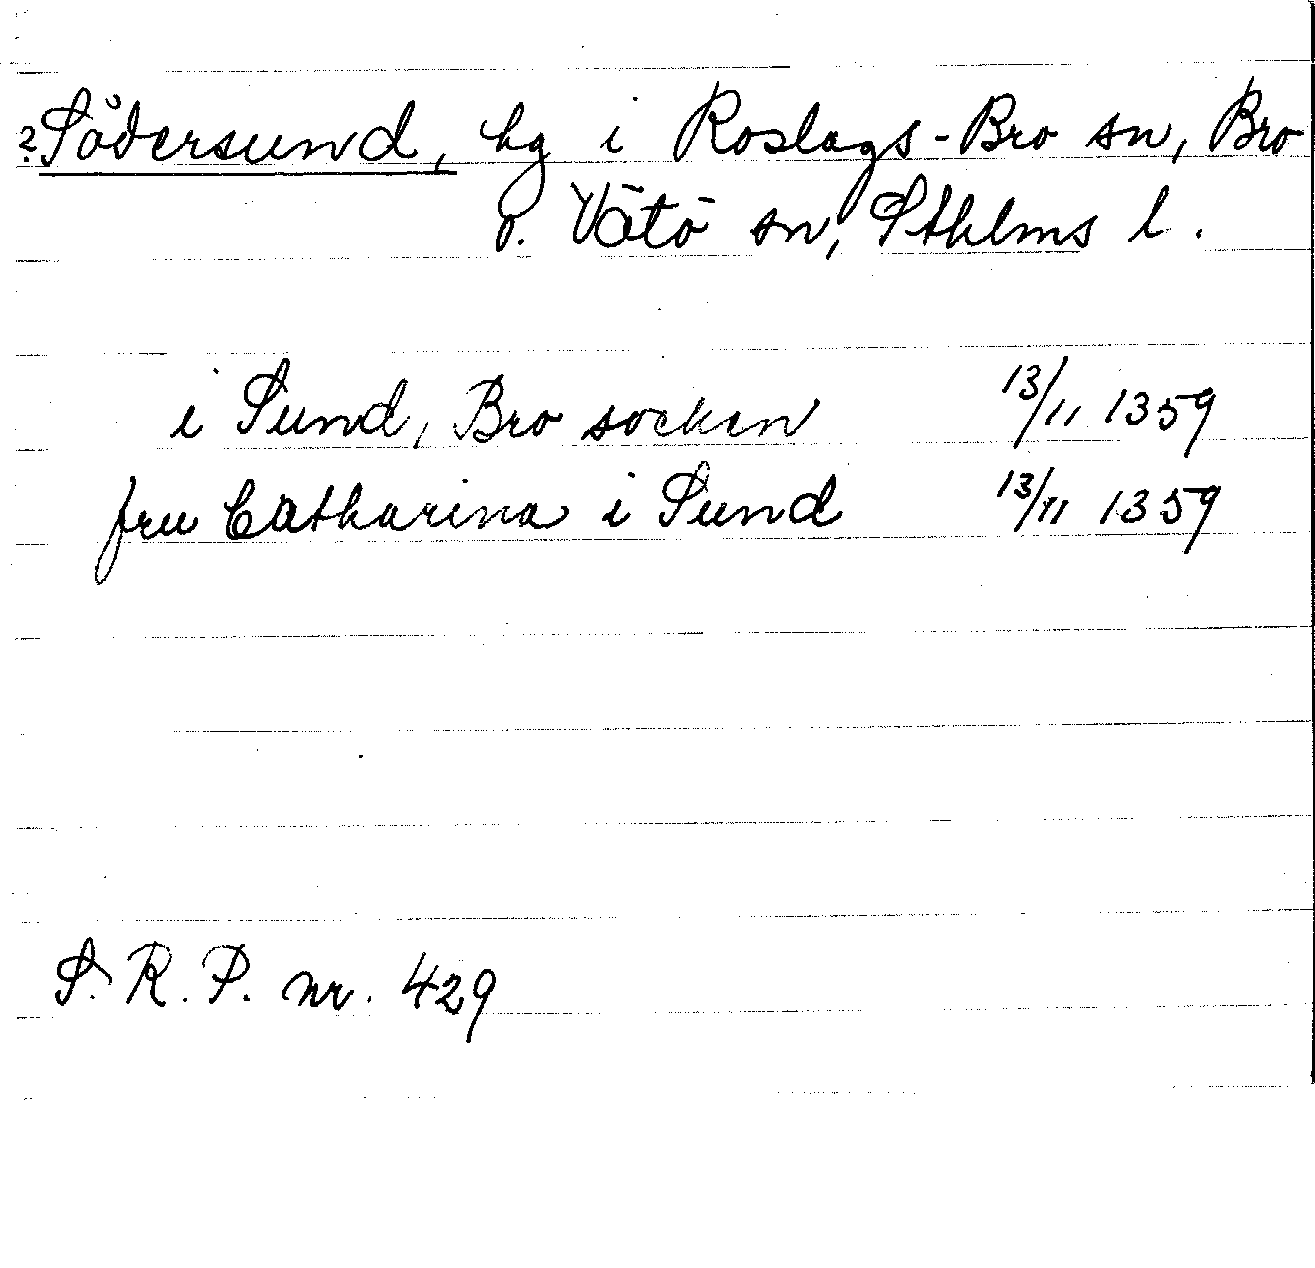 ?Södersund, hg i Roslags-Bro sn, Bro
o. Vätö sn, Sthlms l.
i Sund, Bro socken 13/11 1359
fru Catharina i Sund 13/11 1359
S. R. P. nr. 429